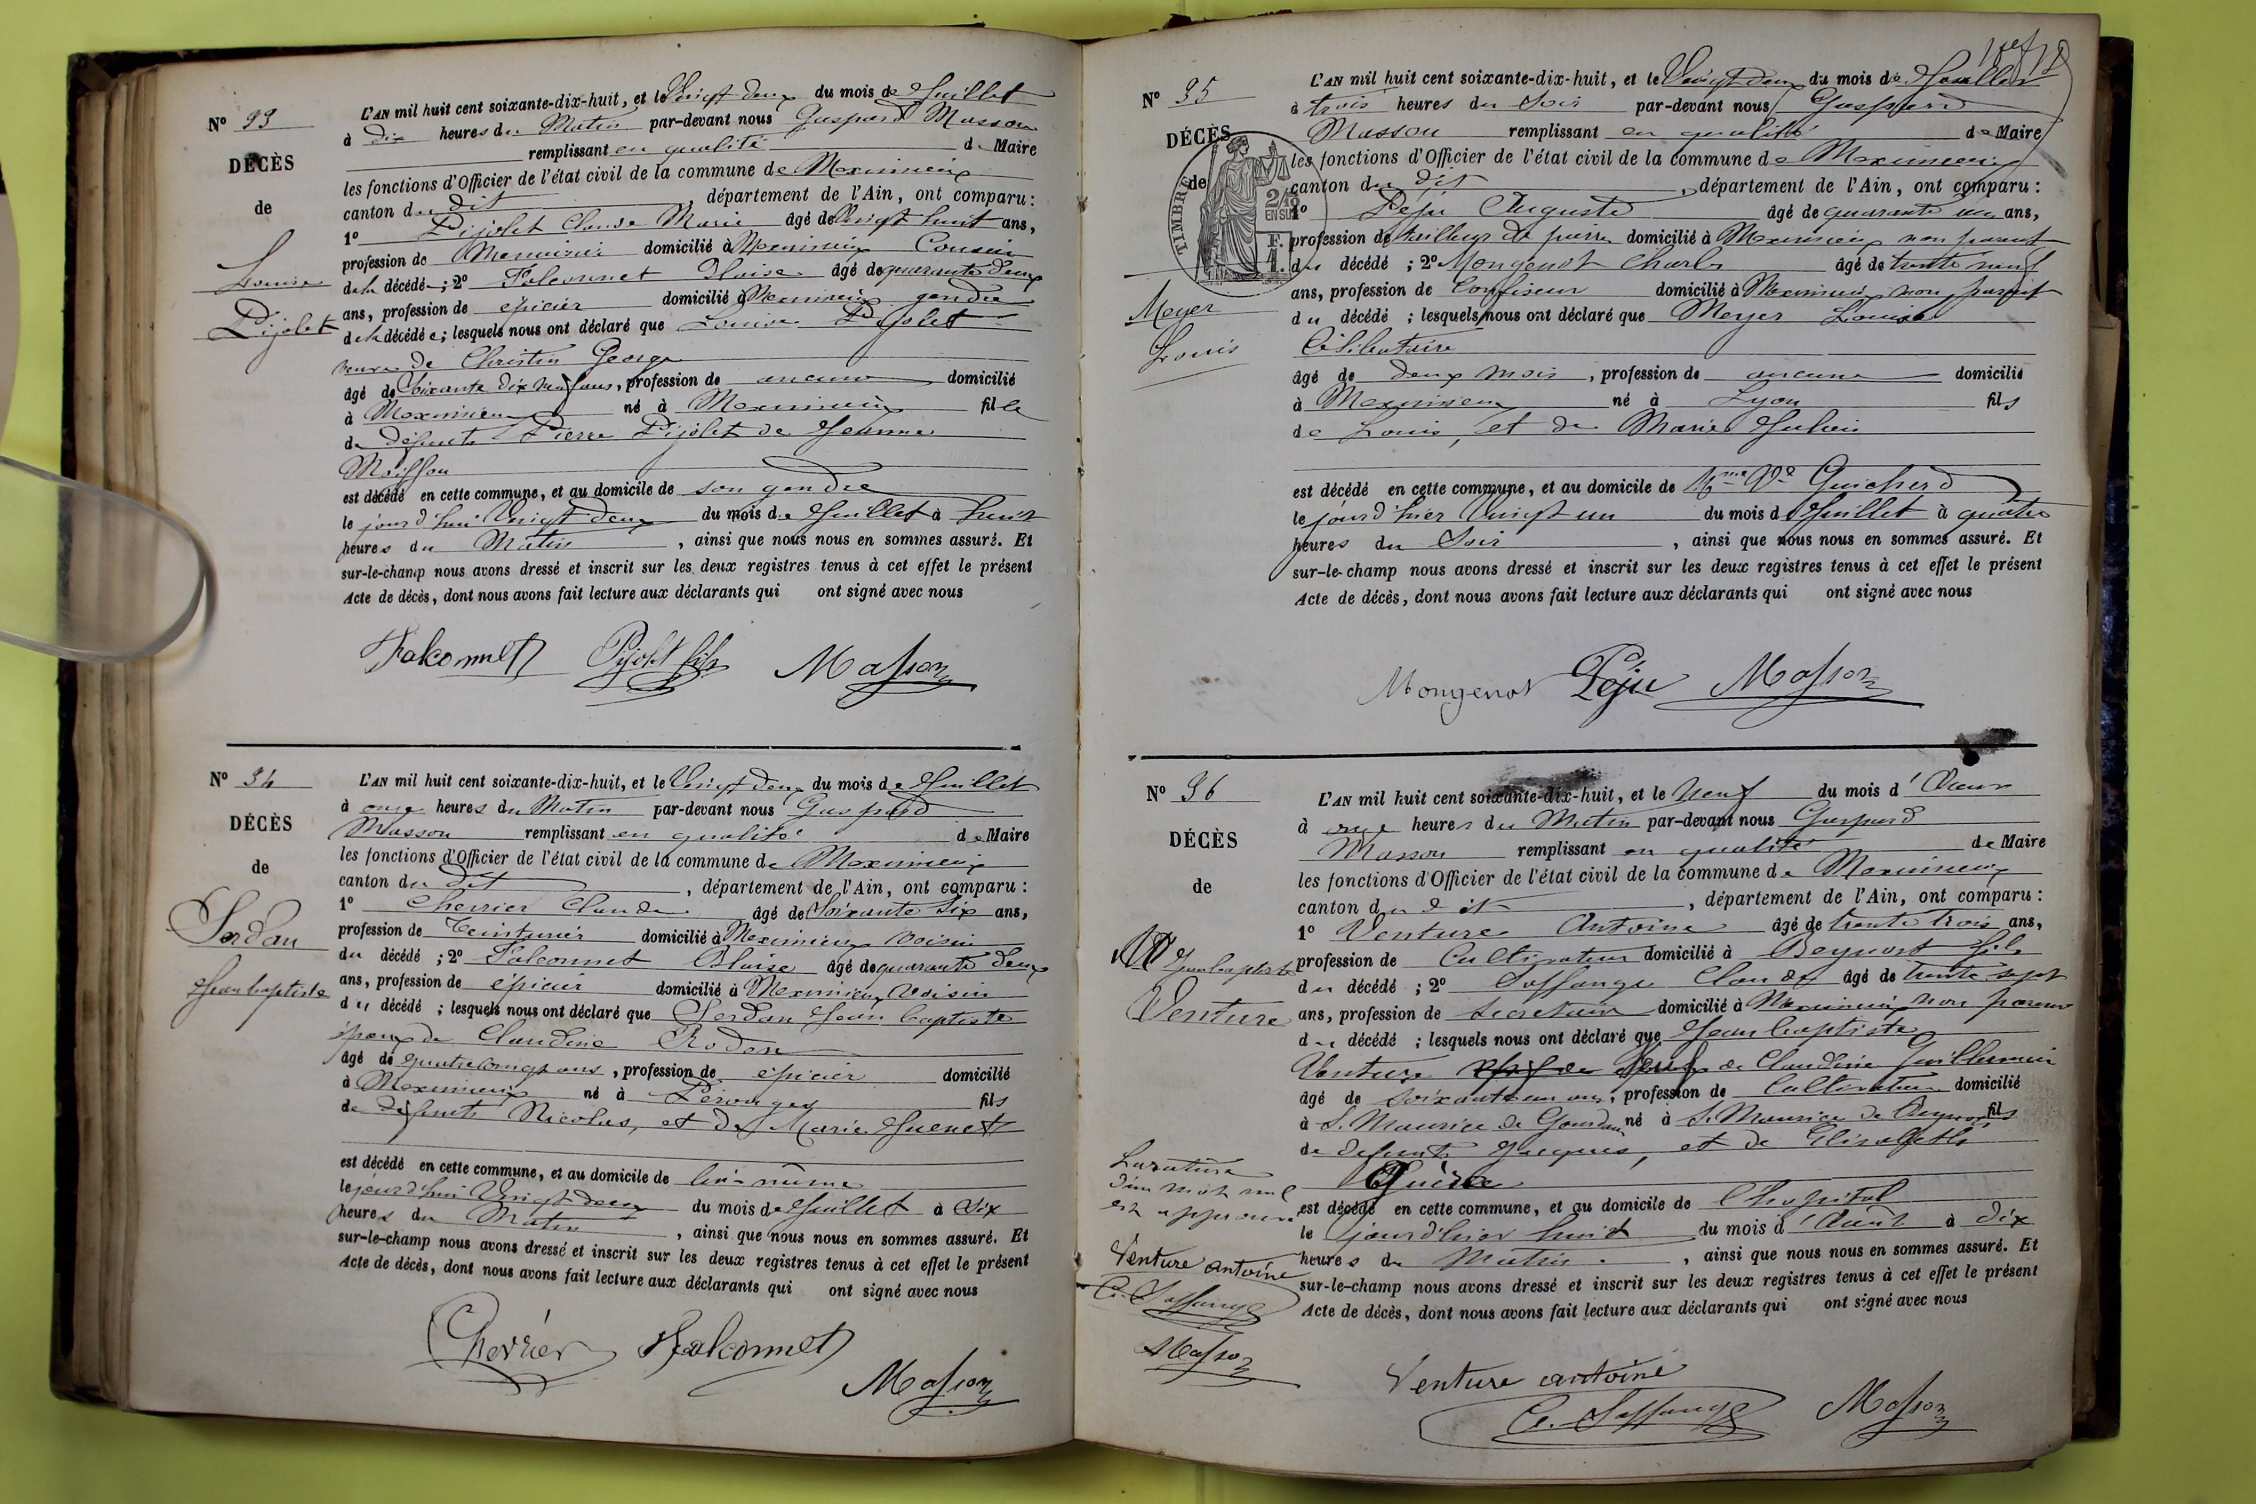 N° 33
DÉCÈS
de
Louise
Pijolet
L'AN mil huit cent soixante-dix-huit, et le Vingt deux du mois de Juillet
à dix heures du Matin par-devant nous Gaspard Masson
remplissant en qualité de Maire
les fonctions d'Officier de l'état civil de la commune de Meximieux
canton du dit, département de l'Ain, ont comparu :
1° Pijolet Claude Marie âgé de Vingt huit ans,
profession de Menuisier domicilié à Meximieux Cousin
de la décédée ; 2° Falconnet Blaise âgé de quarante deux
ans, profession de épicier domicilié à Meximieux gendre
de la décédée ; lesquels nous ont déclaré que Louise Pijolet
veuve de Christin George
âgé de Soixante dix neuf ans, profession de aucune domicilié
à Meximieux né à Meximieux fille
de défunts Pierre Pijolet de Jeanne
Moiffon
est décédé en cette commune, et au domicile de son gendre
le jourd'hui Vingt deux du mois de Juillet à huit
heures du Matin, ainsi que nous nous en sommes assuré. Et
sur-le-champ nous avons dressé et inscrit sur les deux registres tenus à cet effet le présent
Acte de décès, dont nous avons fait lecture aux déclarants qui ont signé avec nous
Falconnet Pijolet fils Masson
N° 34
DÉCÈS
de
Serdan
Jean baptiste
L'AN mil huit cent soixante-dix-huit, et le Vingt deux du mois de Juillet
à onze heures du Matin par-devant nous Gaspard
Masson remplissant en qualité de Maire
les fonctions d'Officier de l'état civil de la commune de Meximieux
canton du dit, département de l'Ain, ont comparu :
1° Cherrier Claude âgé de Soixante Six ans,
profession de Teinturier domicilié à Meximieux Voisin
du décédé ; 2° Falconnet Blaise âgé de quarante deux
ans, profession de épicier domicilié à Meximieux Voisin
du décédé ; lesquels nous ont déclaré que Serdan Jean baptiste
époux de Claudine Rodon
âgé de quatre vingt ans, profession de épicier domicilié
à Meximieux né à Pérouges fils
de défunts Nicolas, et de Marie Juenet
est décédé en cette commune, et au domicile de lui-même
le jourd'hui Vingt deux du mois de Juillet à Six
heures du Matin, ainsi que nous nous en sommes assuré. Et
sur-le-champ nous avons dressé et inscrit sur les deux registres tenus à cet effet le présent
Acte de décès, dont nous avons fait lecture aux déclarants qui ont signé avec nous
Cherrier Falconnet
Masson
N° 35
DÉCÈS
de
TIMBRE
2/10
EN SUS
Meyer
Louis
L'AN mil huit cent soixante-dix-huit, et le Vingt deux du mois de Juillet
à trois heures du Soir par-devant nous Gaspard
Masson remplissant en qualité de Maire
les fonctions d'Officier de l'état civil de la commune de Meximieux
canton du dit, département de l'Ain, ont comparu :
1° Péju Auguste âgé de quarante un ans,
profession de tailleur de pierre domicilié à Meximieux non parent
du décédé ; 2° Mongenot Charles âgé de trente neuf
ans, profession de Confiseur domicilié à Meximieux non parent
du décédé ; lesquels nous ont déclaré que Meyer Louis
Célibataire
âgé de deux mois, profession de aucune domicilié
à Meximieux né à Lyon fils
de Louis, et de Marie Julien
est décédé en cette commune, et au domicile de Mme Ve Guicherd
le jourd'hier Vingt un du mois de Juillet à quatre
heures du Soir, ainsi que nous nous en sommes assuré. Et
sur-le-champ nous avons dressé et inscrit sur les deux registres tenus à cet effet le présent
Acte de décès, dont nous avons fait lecture aux déclarants qui ont signé avec nous
Mongenot Péju Masson
N° 36
DÉCÈS
de
Jean baptiste
Venture
L'AN mil huit cent soixante-dix-huit, et le Neuf du mois d'Août
à onze heures du Matin par-devant nous Gaspard
Masson remplissant en qualité de Maire
les fonctions d'Officier de l'état civil de la commune de Meximieux
canton du dit, département de l'Ain, ont comparu :
1° Venture Antoine âgé de trente trois ans,
profession de Cultivateur domicilié à Beynost fils
du décédé ; 2° Saffange Claude âgé de trente sept
ans, profession de Secrétaire domicilié à Meximieux non parent
du décédé ; lesquels nous ont déclaré que Jean baptiste
Venture veuf de Claudine Guillermin
âgé de soixante un ans, profession de Cultivateur domicilié
à S. Maurice de Gourdan né à S. Maurice de fils
de défunts Jacques, et de Elisabeth
Quèrle
est décédé en cette commune, et au domicile de l'hopital
le jourd'hier huit du mois d'Août à dix
heures du Matin, ainsi que nous nous en sommes assuré. Et
sur-le-champ nous avons dressé et inscrit sur les deux registres tenus à cet effet le présent
Acte de décès, dont nous avons fait lecture aux déclarants qui ont signé avec nous
La rature
d'un mot nul
est approuvée
Venture antoine
C. Saffange
Masson
Venture antoine
C. Saffange Masson